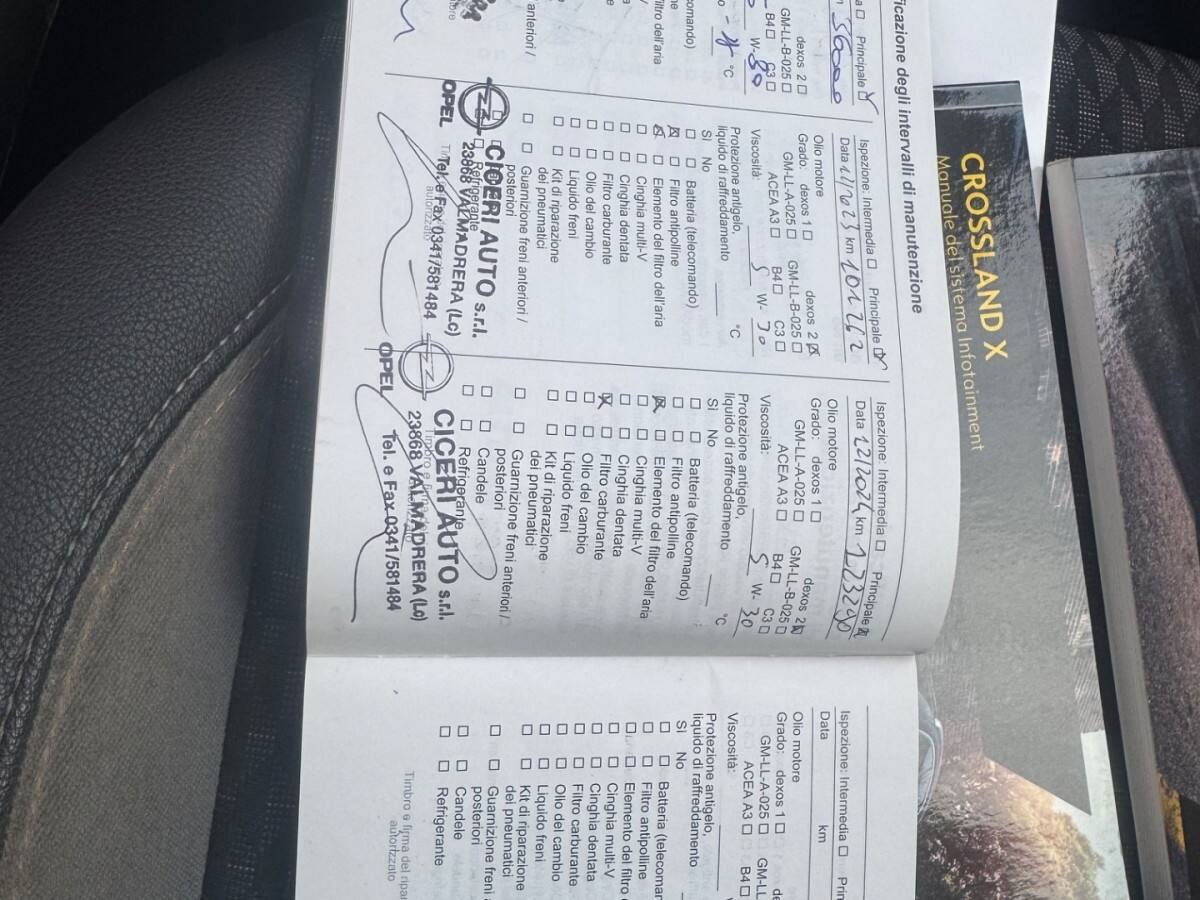 ficazione degli intervalli di manutenzione
Principale
56000
dexos 2
GM-LL-B-025
B4 C3
W-
°C
comando)
ne
filtro dell'aria
V
anteriori /
OPEL
Ispezione: Intermedia Principale
Data km 101262
Olio motore
Grado: dexos 1 dexos 2
GM-LL-A-025 GM-LL-B-025
ACEA A3 B4 C3
Viscosità: 5 W- 30
Protezione antigelo,
liquido di raffreddamento °C
Sì No
Batteria (telecomando)
Filtro antipolline
Elemento del filtro dell'aria
Cinghia multi-V
Cinghia dentata
Filtro carburante
Olio del cambio
Liquido freni
Kit di riparazione
dei pneumatici
Guarnizione freni anteriori /
posteriori
Refrigerante
CICERI AUTO s.r.l.
23868 VALMADRERA (Lc)
Tel. e Fax 0341/581484
autorizzato
OPEL
Ispezione: Intermedia Principale
Data 22/2024 km 123290
Olio motore
Grado: dexos 1 dexos 2
GM-LL-A-025 GM-LL-B-025
ACEA A3 B4 C3
Viscosità: 5 W- 30
Protezione antigelo,
liquido di raffreddamento °C
Sì No
Batteria (telecomando)
Filtro antipolline
Elemento del filtro dell'aria
Cinghia multi-V
Cinghia dentata
Filtro carburante
Olio del cambio
Liquido freni
Kit di riparazione
dei pneumatici
Guarnizione freni anteriori /
posteriori
Candele
Refrigerante
CICERI AUTO s.r.l.
23868 VALMADRERA (Lc)
Tel. e Fax 0341/581484
Ispezione: Intermedia Prin
Data km
Olio motore
Grado: dexos 1 de
GM-LL-A-025 GM-LL
ACEA A3 B4
Viscosità:
Protezione antigelo,
liquido di raffreddamento
Sì No
Batteria (telecoman
Filtro antipolline
Elemento del filtro
Cinghia multi-V
Cinghia dentata
Filtro carburante
Olio del cambio
Liquido freni
Kit di riparazione
dei pneumatici
Guarnizione freni a
posteriori
Candele
Refrigerante
Timbro e firma del ripar
autorizzato
CROSSLAND X
Manuale del sistema Infotainment